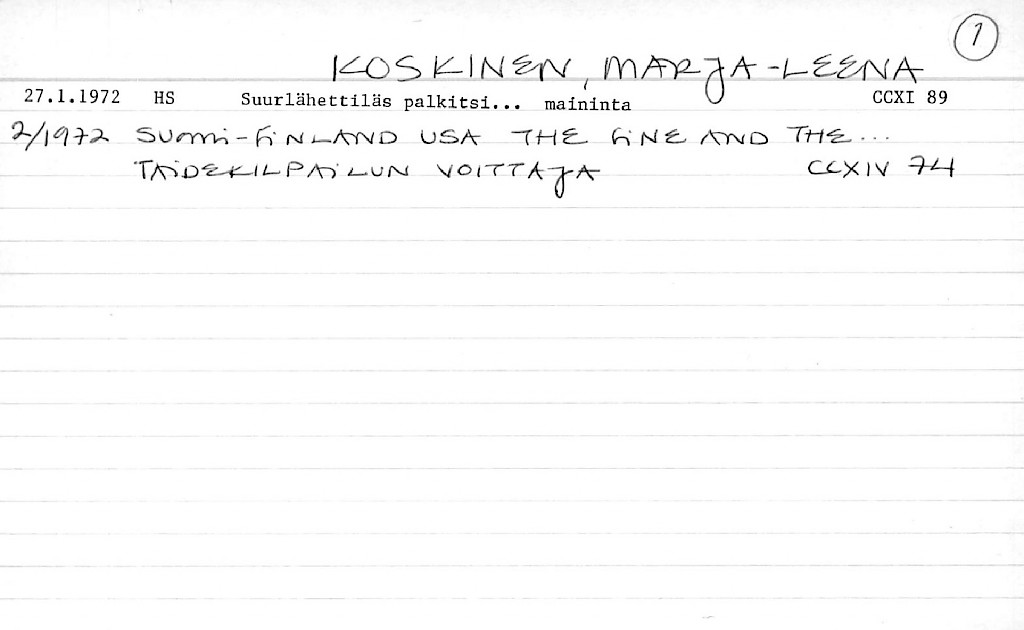 1
KOSKINEN, MARJA-LEENA
27.1.1972 HS Suurlähettiläs palkitsi... maininta CCXI 89
2/1972 SUOMI-FINLAND USA THE FINE AND THE...
TAIDEKILPAILUN VOITTAJA CCXIV 74